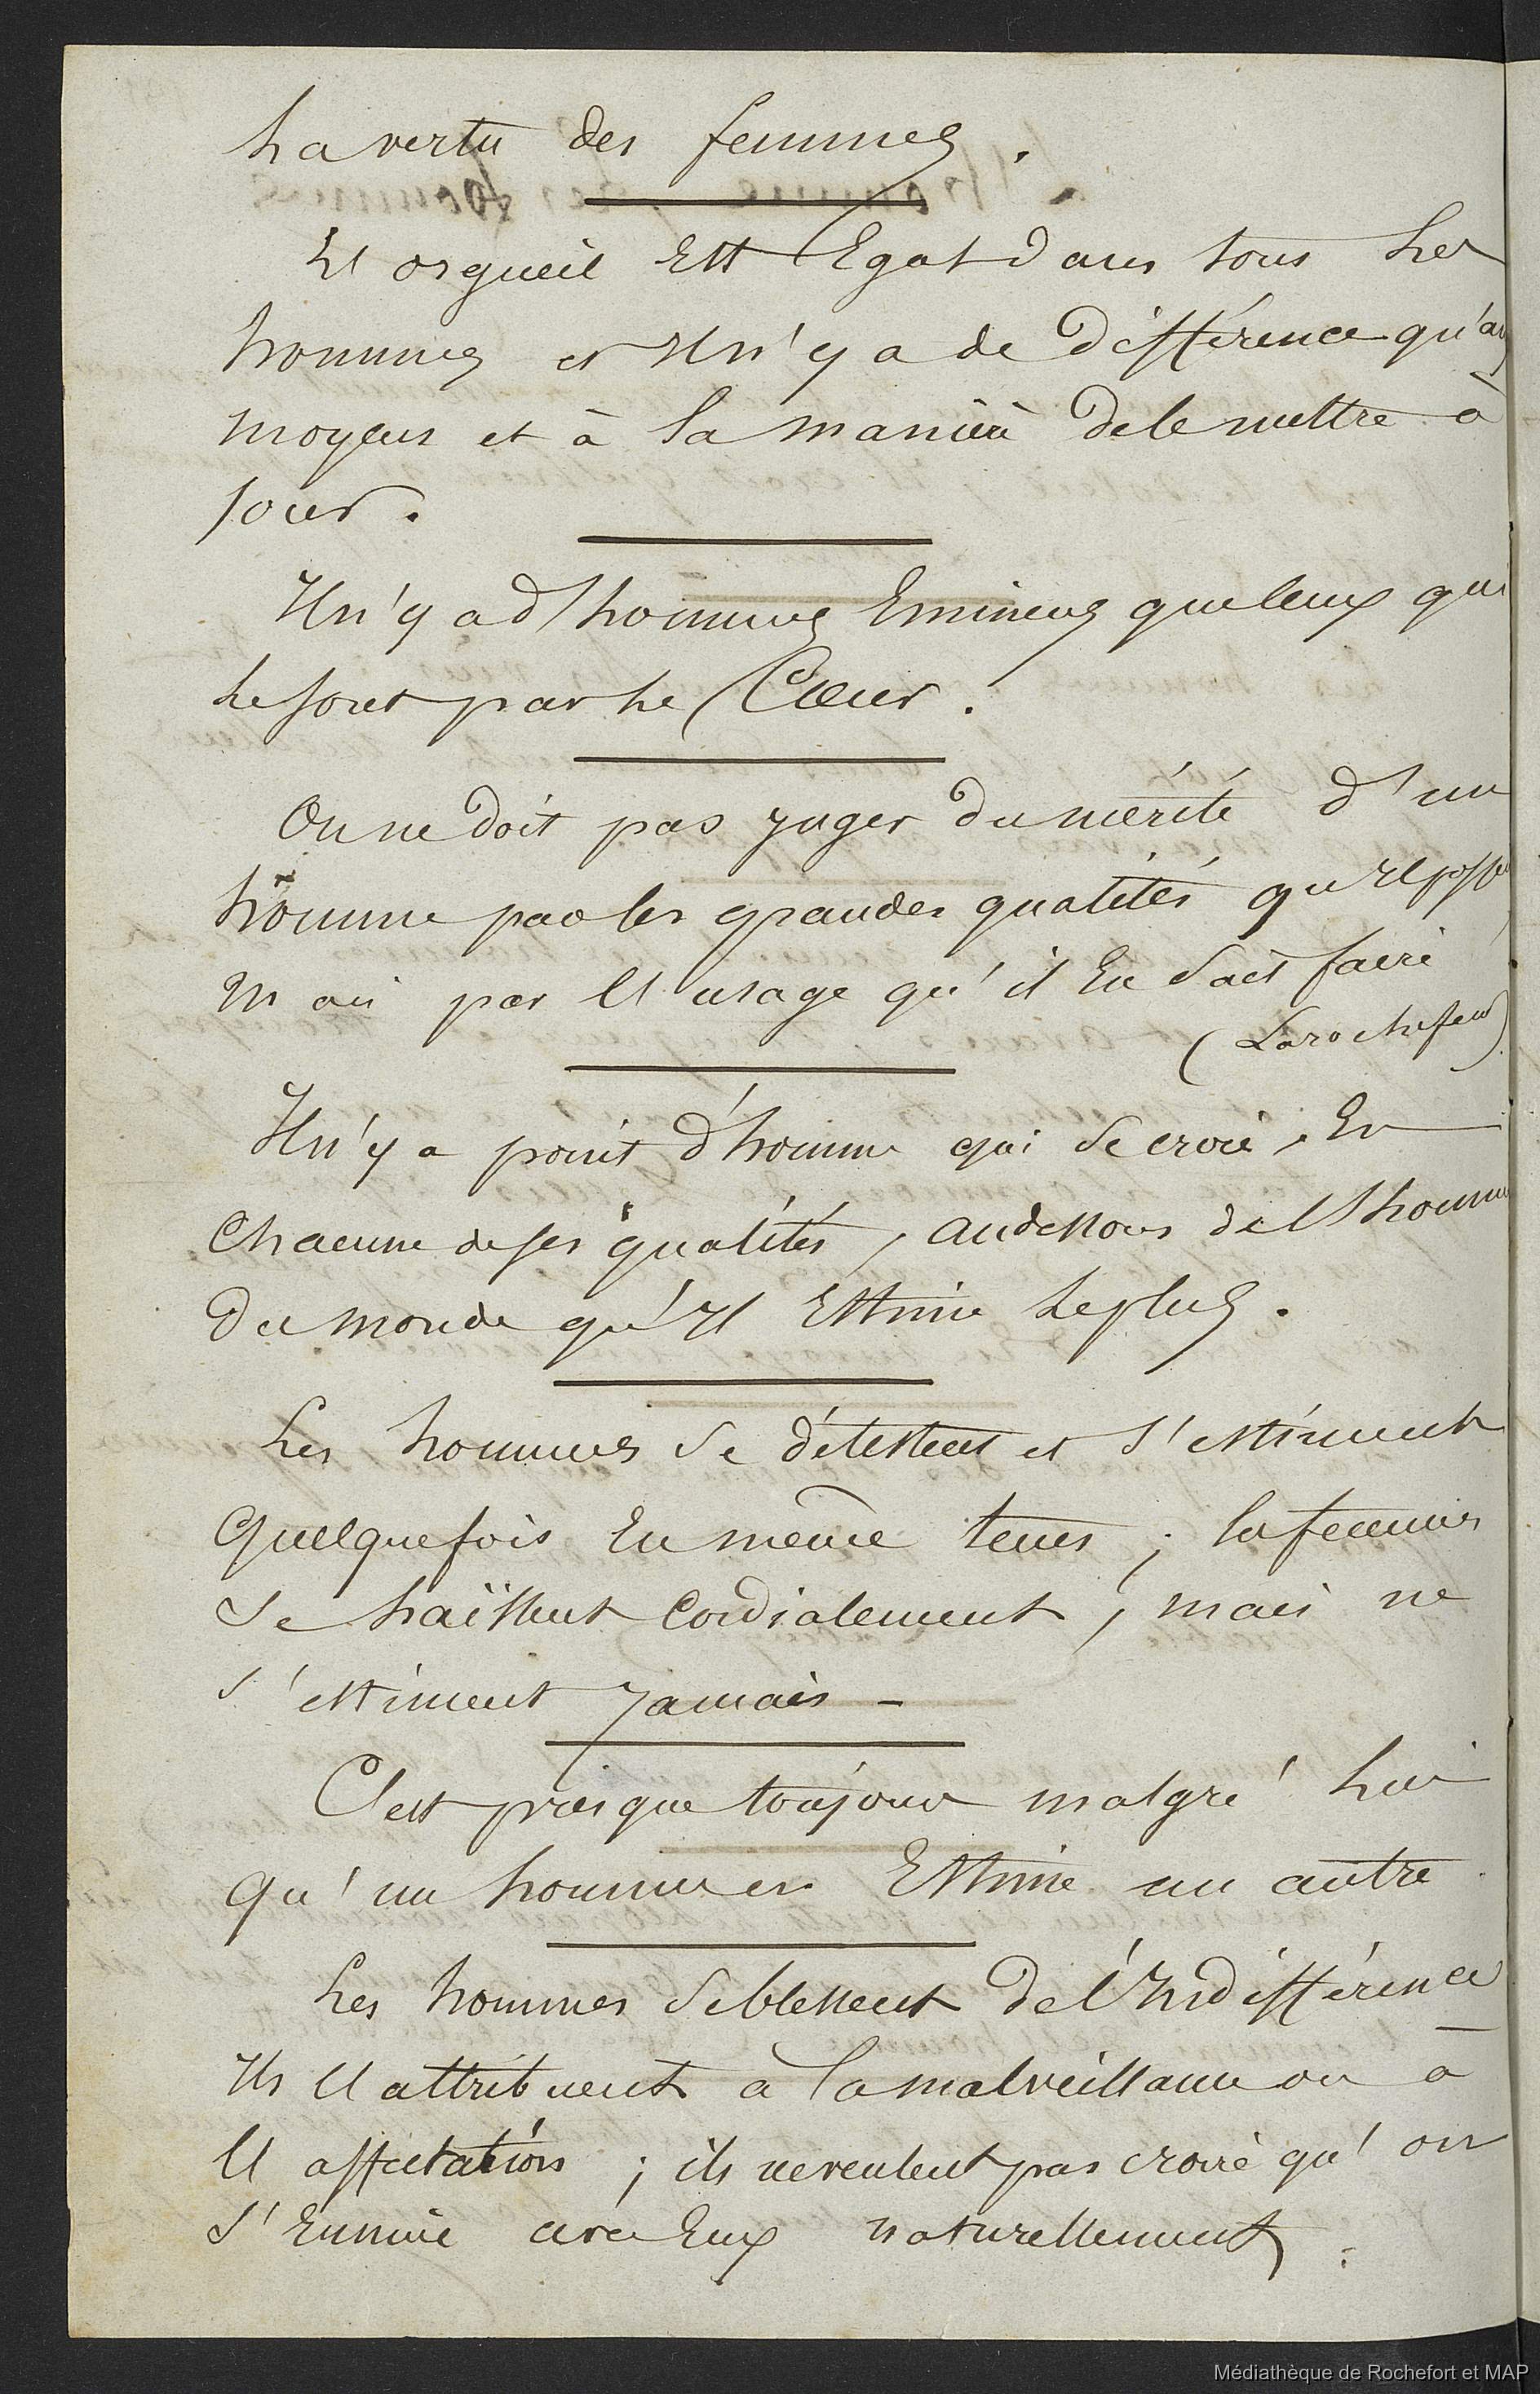 La vertu des femmes.
L'orgueil Est Egal dans tous Les
hommes et Il n'y a de différence qu'aux
moyens et à la manière de le mettre à
jour.
Il n'y a d'hommes Eminens que ceux qui
Le sont par Le Cœur.
On ne doit pas juger du mérite d'un
homme par les grandes qualités qu'Il
mais par l'usage qu'il En sait faire
(Larochefou)
Il n'y a point d'homme qui se croie, En
Chacune de ses qualités, au dessous de l'homme
Du monde qu'Il Estime Le plus.
Les hommes se détestent et s'estiment
Quelquefois En même tems ; les femmes
se haïssent Cordialement, mais ne
s'estiment jamais -
C'est presque toujours malgré Lui
Qu'un homme en Estime un autre.
Les hommes se blessent de l'Indifférence
Ils l'attribuent à la malveillance ou à
l'affectation ; ils ne veulent pas croire qu'on
s'Ennuie avec Eux naturellement.
Médiathèque de Rochefort et MAP